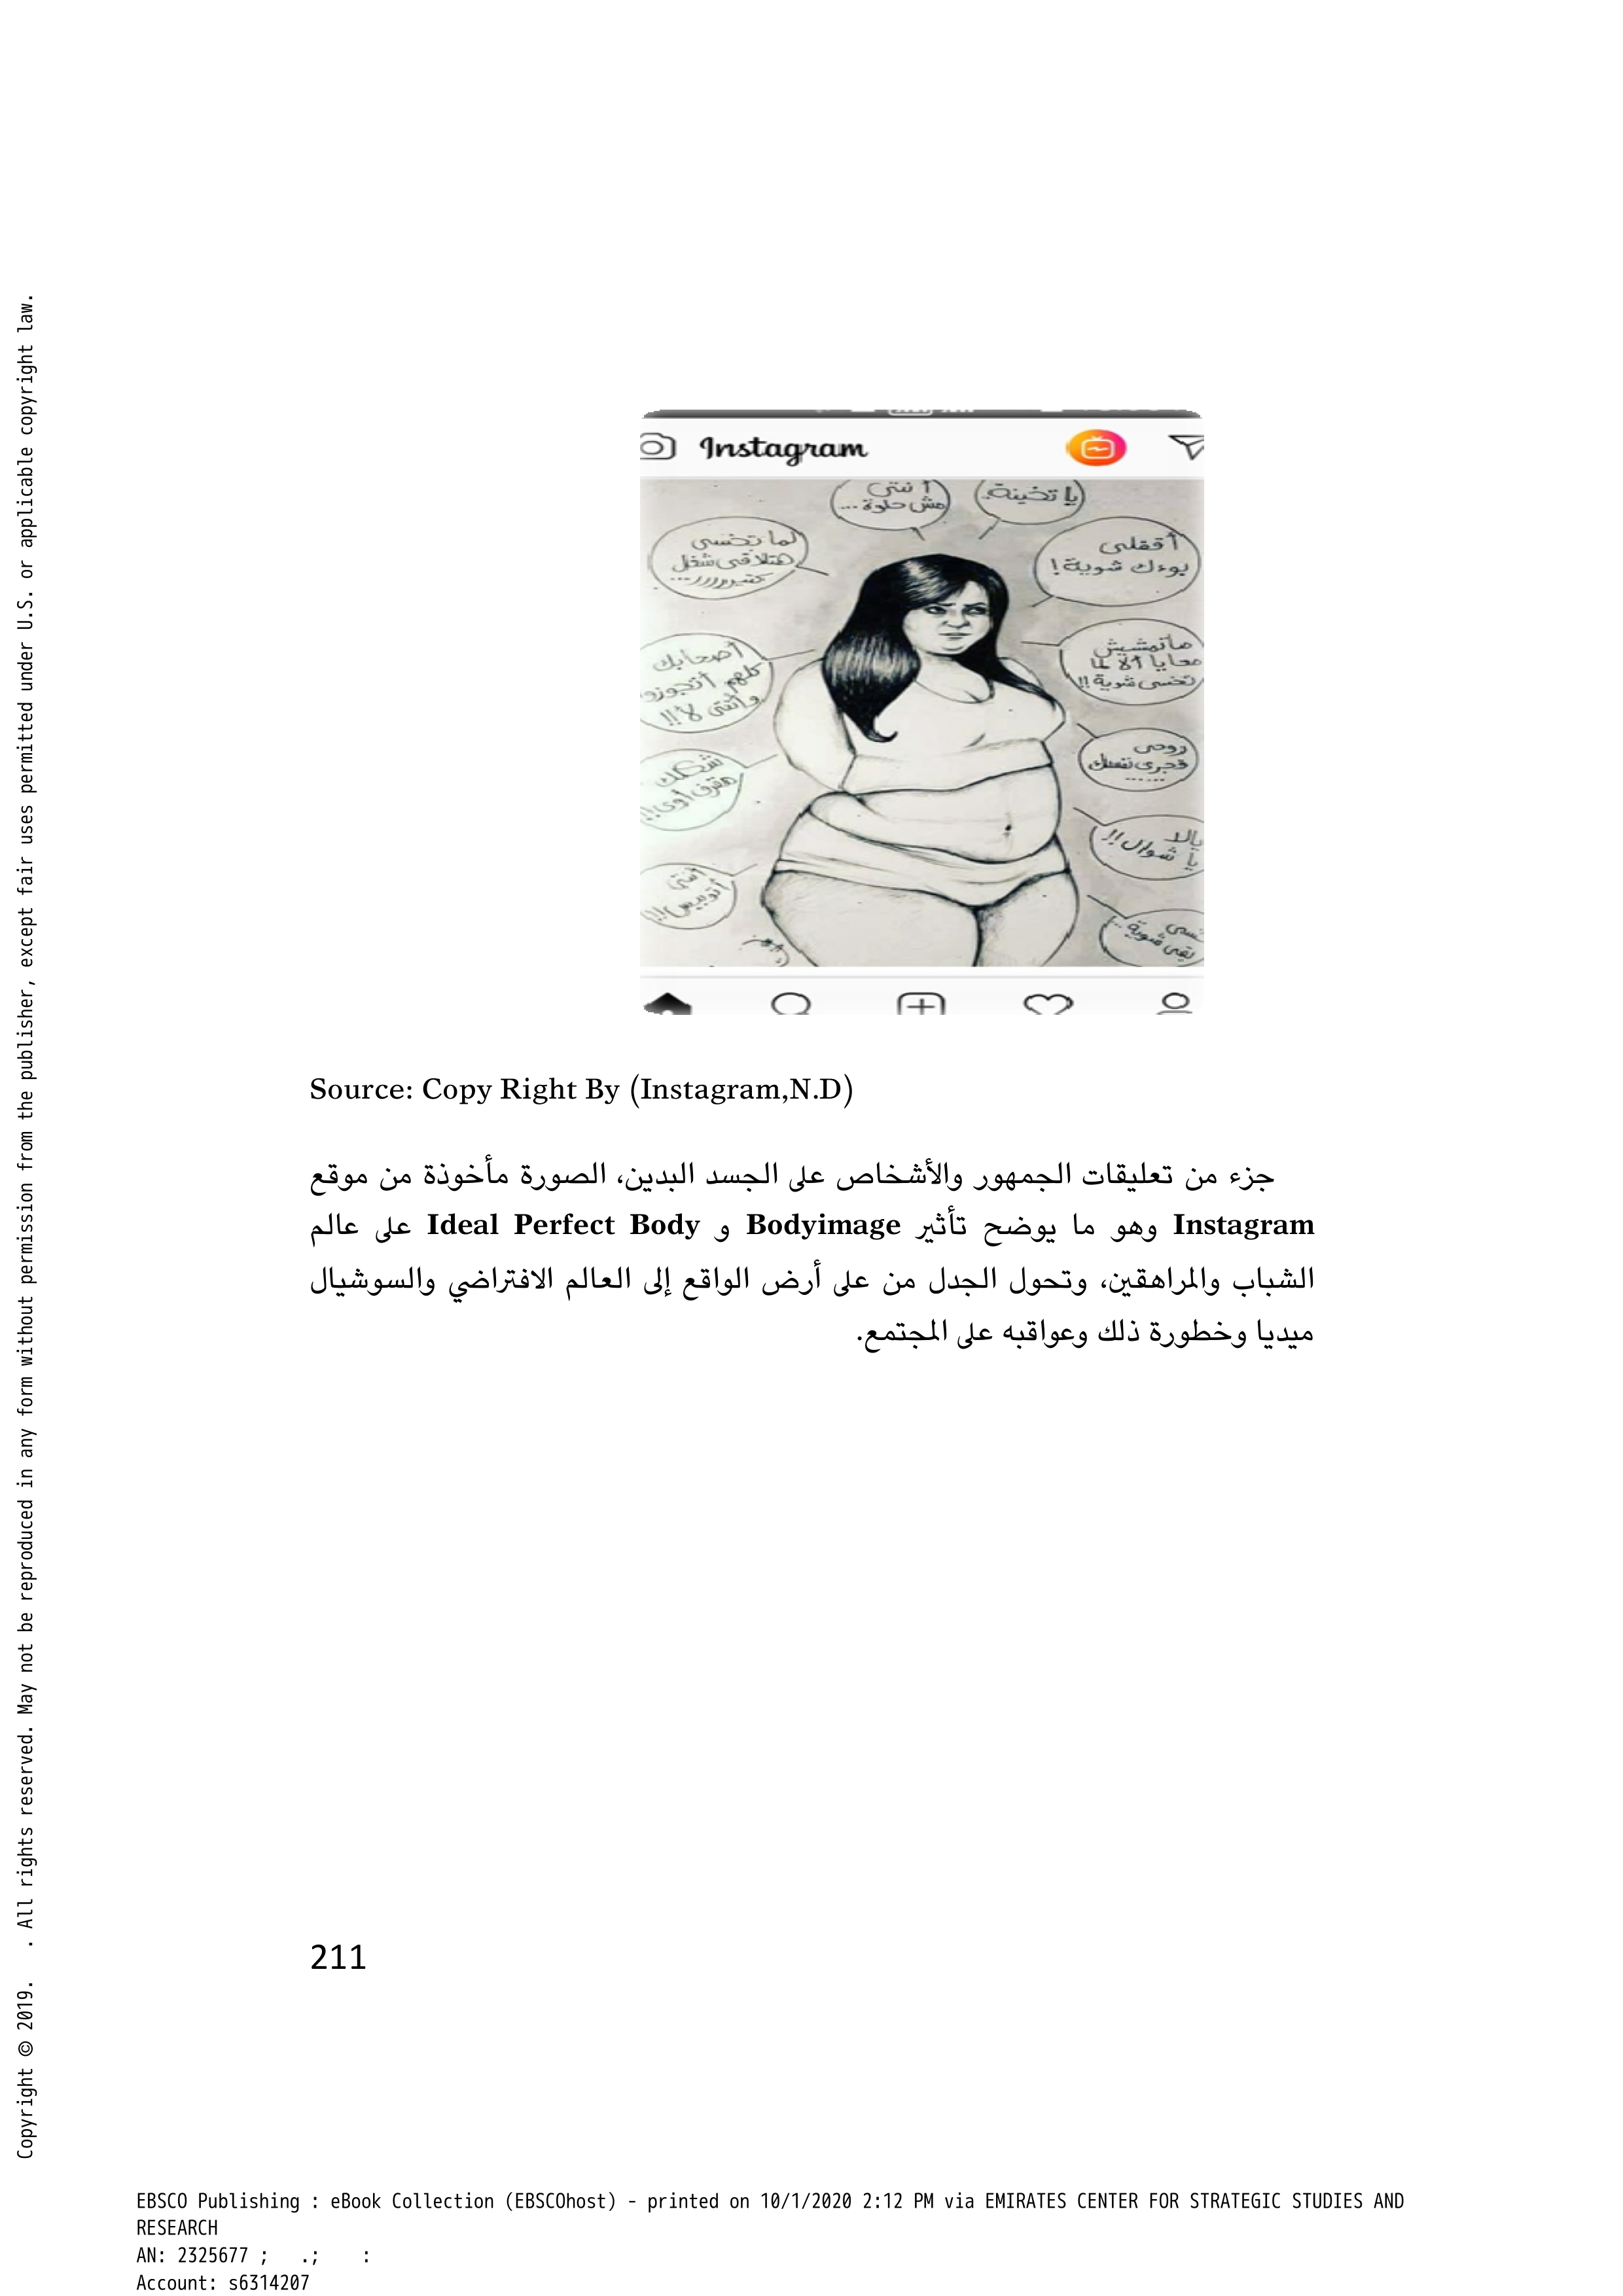 Instagram
أنتى
مش حلوة...
يا تخينة
لما تخسى
هتلاقى شغل
كتيررررر...
أقفلى
بوءك شوية!
ماتمشيش
معايا ألا لما
تخسى شوية!!
أصحابك
كلهم أتجوزو
وأنتى لأ!!
روحى
فجرى نفسك
......
شكلك
مقرف أوى!!
يالا
يا شوال!!
أنتى
أتوبيس!!!
خسى
بقى شوية...
Source: Copy Right By (Instagram,N.D)
جزء من تعليقات الجمهور والأشخاص على الجسد البدين، الصورة مأخوذة من موقع
Instagram وهو ما يوضح تأثير Bodyimage و Ideal Perfect Body على عالم
الشباب والمراهقين، وتحول الجدل من على أرض الواقع إلى العالم الافتراضي والسوشيال
ميديا وخطورة ذلك وعواقبه على المجتمع.
211
Copyright © 2019. . All rights reserved. May not be reproduced in any form without permission from the publisher, except fair uses permitted under U.S. or applicable copyright law.
EBSCO Publishing : eBook Collection (EBSCOhost) - printed on 10/1/2020 2:12 PM via EMIRATES CENTER FOR STRATEGIC STUDIES AND
RESEARCH
AN: 2325677 ; .; :
Account: s6314207